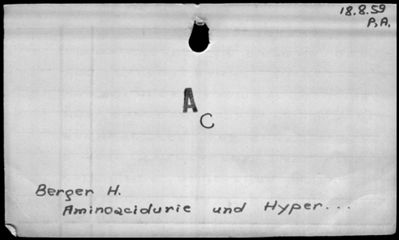 18.8.59
P.A.
A
C
Berger H.
Aminoacidurie und Hyper...